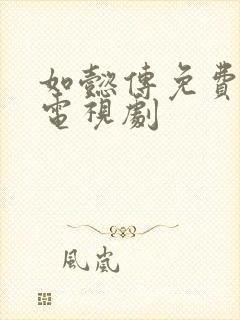 如懿傳免費
電視劇
風嵐